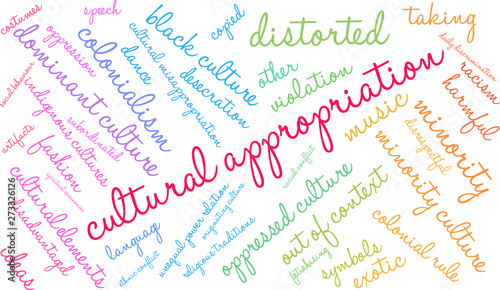 costumes
speech
social behavior
oppression
dominant culture
colonialism
dance
cultural misappropriation
black culture
desecration
copied
distorted
other
violation
taking
daily discrimination
racism
harmful
artifacts
indigenous cultures
subordinated
fashion
cultural appropriation
music
disrespectful
minority
minority culture
cultural elements
disadvantaged
bias
language
ethnic conflict
unequal power relation
originating culture
religious traditions
racial conflict
oppressed culture
out of context
fetishizing
symbols
exotic
colonial rule
Adobe Stock | #273326126